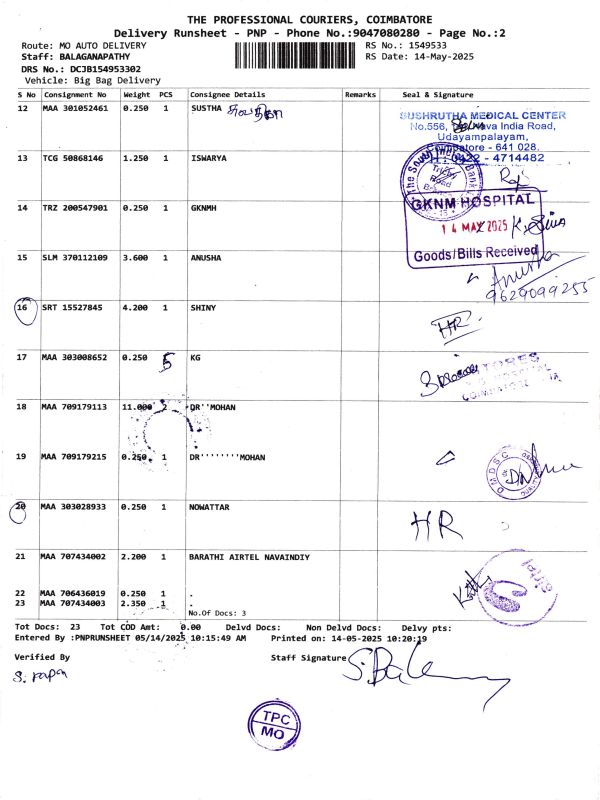 THE PROFESSIONAL COURIERS, COIMBATORE
Delivery Runsheet - PNP - Phone No.:9047080280 - Page No.:2
Route: MO AUTO DELIVERY RS No.: 1549533
Staff: BALAGANAPATHY RS Date: 14-May-2025
DRS No.: DCJB154953302
Vehicle: Big Bag Delivery
S No Consignment No Weight PCS Consignee Details Remarks Seal & Signature
12 MAA 301052461 0.250 1 SUSTHA
SUSHRUTHA MEDICAL CENTER
No.556, India Road,
Udayampalayam,
- 641 028.
- 4714482
13 TCG 50868146 1.250 1 ISWARYA
The South Indian Bank
Road
14 TRZ 200547901 0.250 1 GKNMH
GKNM HOSPITAL
14 MAY 2025
Goods/Bills Received
15 SLM 370112109 3.600 1 ANUSHA
Anusha
9629099255
16 SRT 15527845 4.200 1 SHINY
HR
17 MAA 303008652 0.250 5 KG
STORES
HOSPITAL
18 MAA 709179113 11.000 2 DR''MOHAN
19 MAA 709179215 0.250 1 DR''''''''MOHAN
DMDSC
20 MAA 303028933 0.250 1 NOWATTAR
HR
21 MAA 707434002 2.200 1 BARATHI AIRTEL NAVAINDIY
airtel
22 MAA 706436019 0.250 1 .
23 MAA 707434003 2.350 1 .
No.Of Docs: 3
Tot Docs: 23 Tot COD Amt: 0.00 Delvd Docs: Non Delvd Docs: Delvy pts:
Entered By :PNPRUNSHEET 05/14/2025 10:15:49 AM Printed on: 14-05-2025 10:20:19
Verified By Staff Signature
TPC
MO